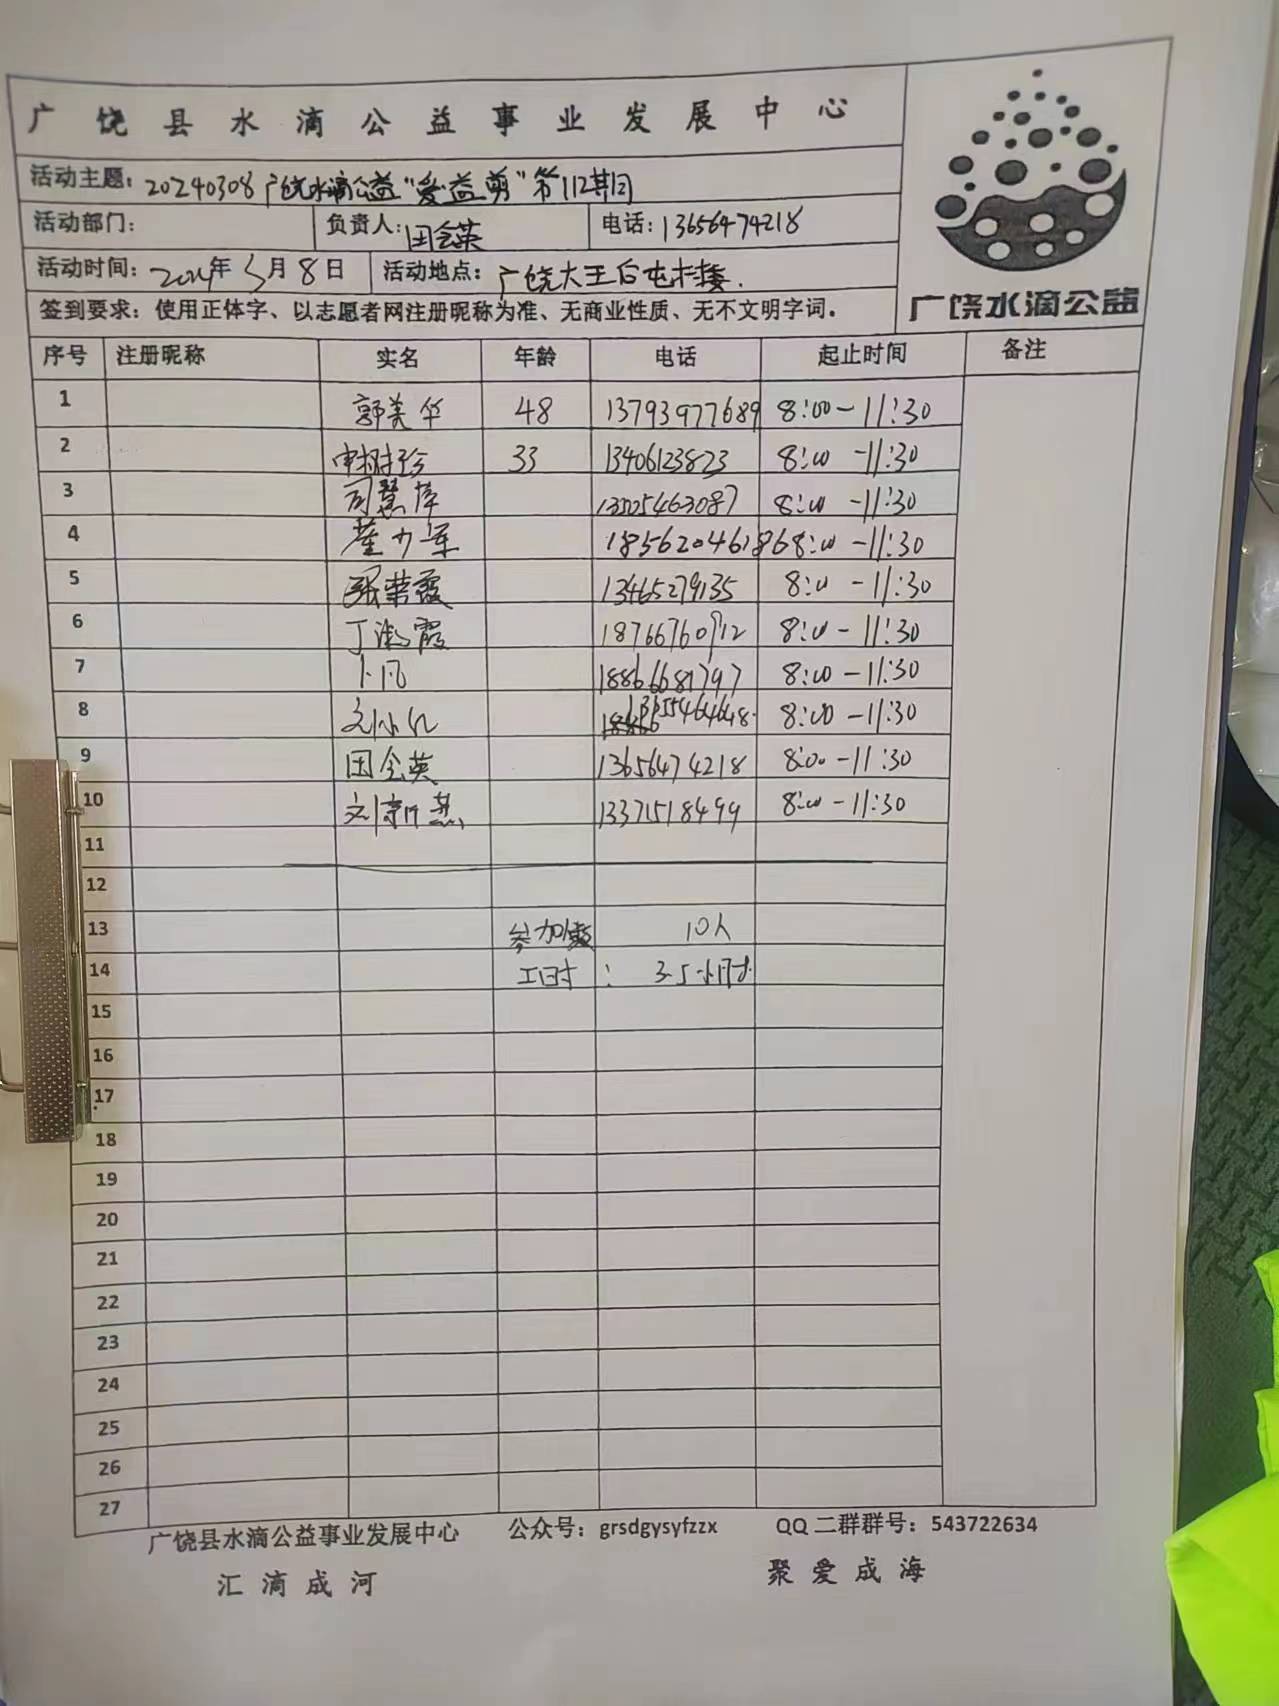 广饶县水滴公益事业发展中心
活动主题：20240308广饶水滴公益“爱益剪”第112期
活动部门： 负责人：田全英 电话：13656474218
活动时间：2024年3月8日 活动地点：广饶大王后屯村楼.
签到要求：使用正体字、以志愿者网注册昵称为准、无商业性质、无不文明字词。
广饶水滴公益
序号 注册昵称 实名 年龄 电话 起止时间 备注
1 郭美华 48 13793977689 8:00-11:30
2 申树珍 33 13406123823 8:00-11:30
3 司慧萍 13505463087 8:00-11:30
4 董力军 18562046186 8:00-11:30
5 张荣霞 13465279135 8:00-11:30
6 丁淑霞 18766760912 8:00-11:30
7 卜凡 18866681797 8:00-11:30
8 13655464648. 8:00-11:30
9 田全英 13656474218 8:00-11:30
10 刘新燕 13371518499 8:00-11:30
11
12
13 参加 10人
14 工时： 3.5小时.
15
16
17
18
19
20
21
22
23
24
25
26
27
广饶县水滴公益事业发展中心 公众号：grsdgysyfzzx QQ二群群号：543722634
汇滴成河 聚爱成海